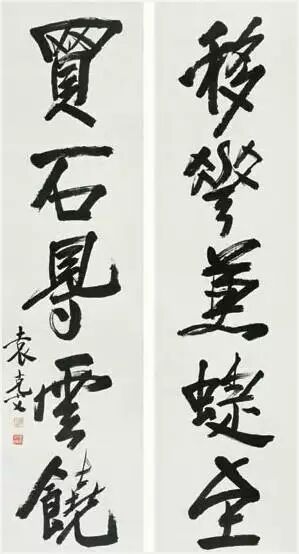 移華兼蜨至
買石㝵雲饒
袁克文